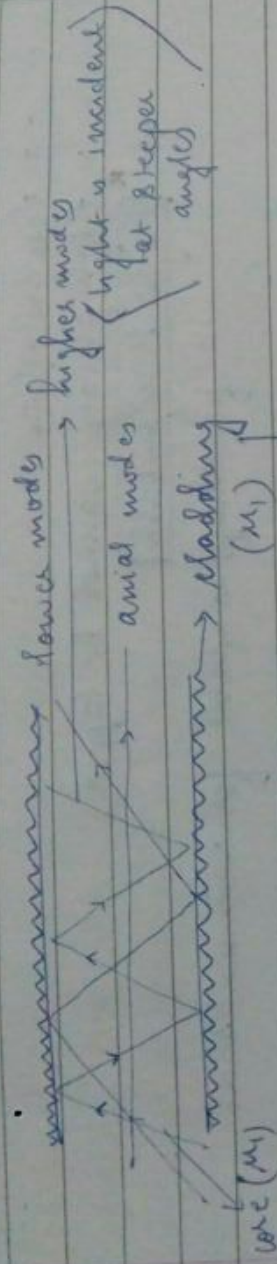 lower modes
higher modes
(light is incident
at steeper
angles)
axial modes
cladding
(μ1)
core (μ1)